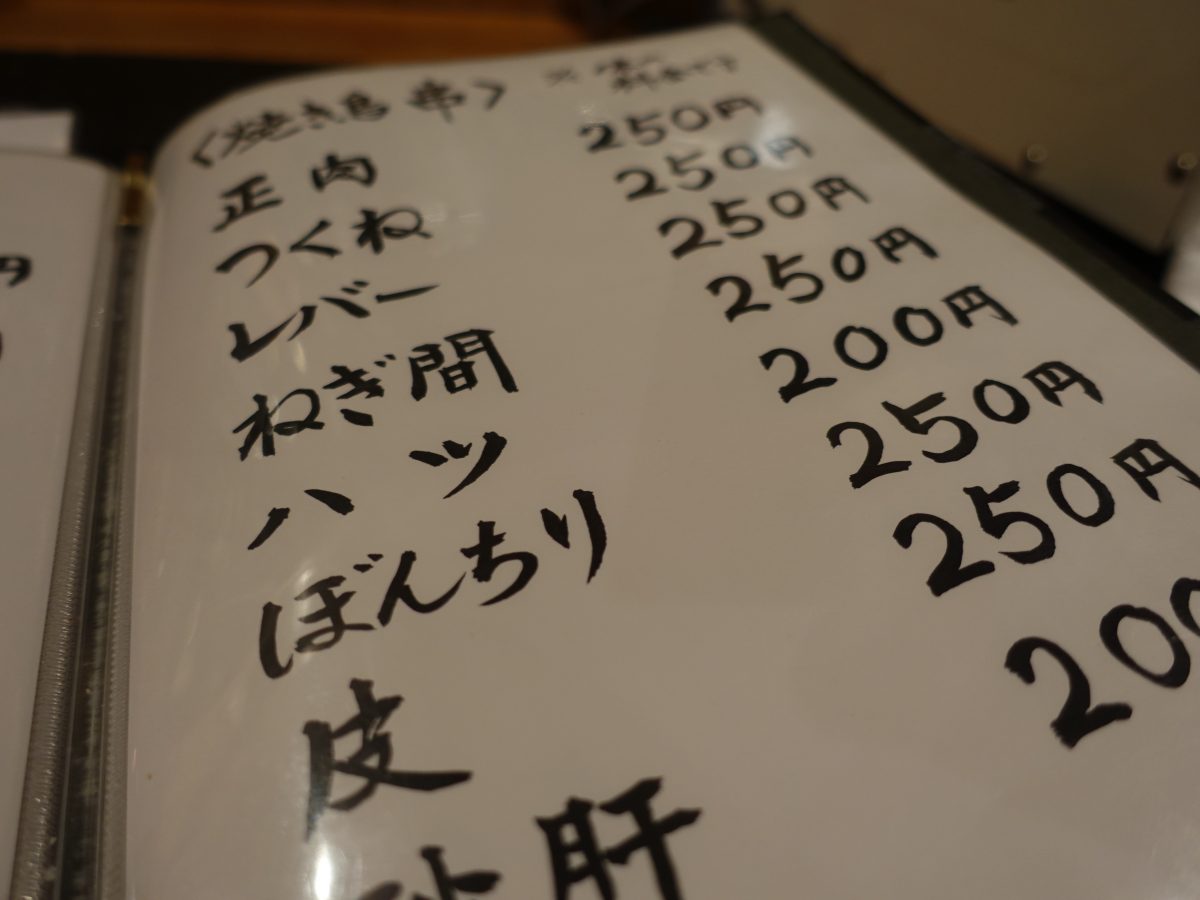 〈焼き鳥 串〉
正肉 250円
つくね 250円
レバー 250円
ねぎ間 250円
ハツ 200円
ぼんちり 250円
皮 250円
砂肝 200